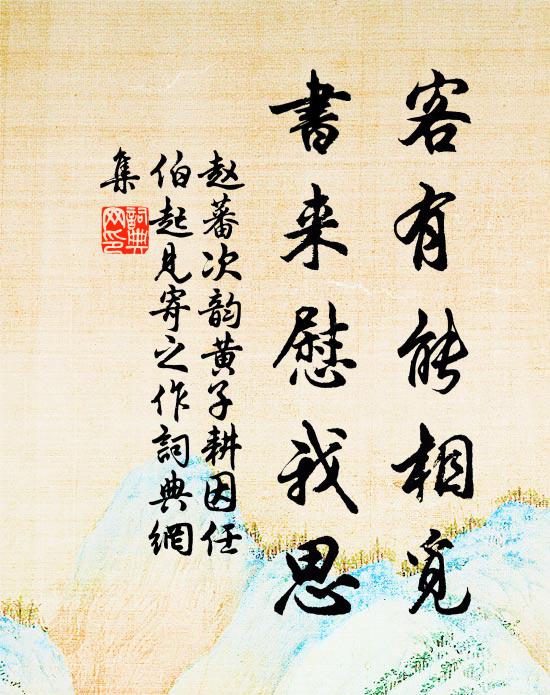 客有能相覓
書来慰我思
赵蕃次韵黄子耕因任
伯起見寄之作詞典網
集
詞典
网印